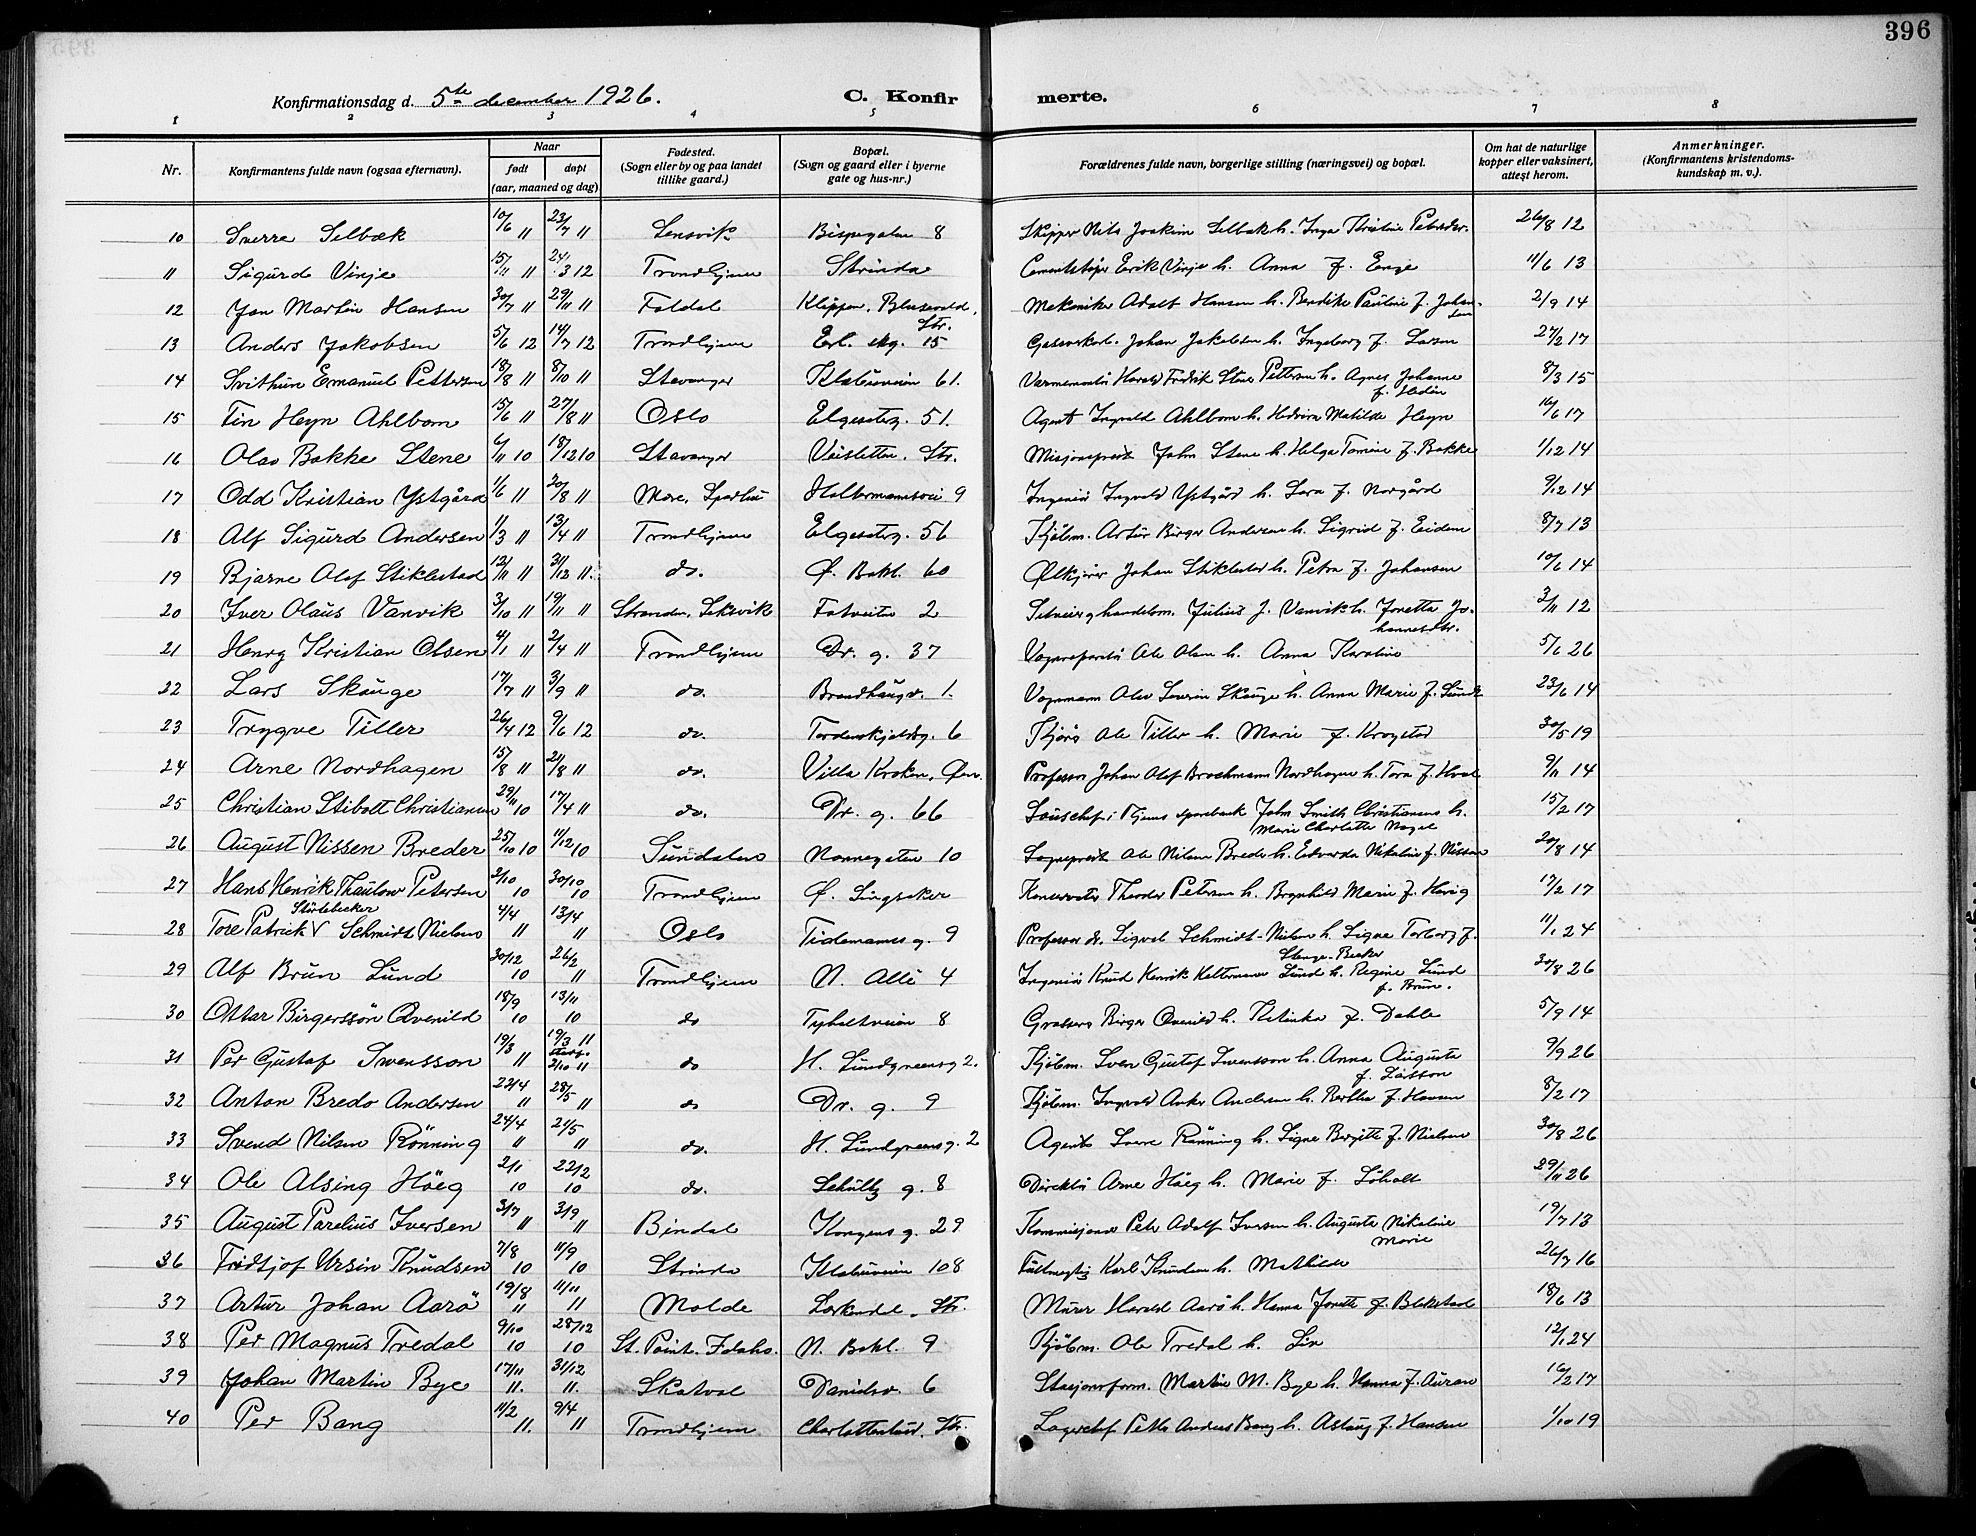 396
Konfirmationsdag d. 5te december 1926. C. Konfir merte.
1 2 3 4 5 6 7 8
Nr. Konfirmantens fulde navn (ogsaa efternavn). Naar født døpt (aar, maaned og dag) Fødested. (Sogn eller by og paa landet tillike gaard.) Bopæl. (Sogn og gaard eller i byerne gate og hus-nr.) Forældrenes fulde navn, borgerlige stilling (næringsvei) og bopæl. Om hat de naturlige kopper eller vaksinert, attest herom. Anmerkninger. (Konfirmantens kristendoms- kundskap m. v.).
10 Sverre Selbæk 10/6 11 23/7 11 Lensvik Bispegaten 8 Skipper Nils Joakim Selbæk h. Inga Kristine Petersdr. 26/8 12
11 Sigurd Vinje 15/11 11 24/3 12 Trondhjem Strinda Cementstøper Erik Vinje h. Anna f. Enge 11/6 13
12 Jon Martin Hansen 30/7 11 29/11 11 Foldal Klippen, Blusevold, Str. Mekaniker Adolf Hansen h. Bendikte Pauline f. Johansen 2/9 14
13 Anders Jakobsen 5/6 12 14/7 12 Trondhjem Erl. skg. 15 Johan Jakobsen h. Ingeborg f. Larsen 27/2 17
14 Svithun Emanuel Pettersen 18/8 11 8/10 11 Stavanger Klæbuveien 61. Varmemontør Harald Fredrik Pettersen h. Agnes Johanne f. Hedén 8/3 15
15 Fin Heyn Ahlbom 15/6 11 27/8 11 Oslo Elgesæterg. 51. Agent Ingvald Ahlbom h. Matilde Heyn 16/6 17
16 Olav Bakke Stene 6/11 10 18/12 10 Stavanger Veisletten, Str. Misjonsprest John Stene h. Helga Tomine f. Bakke 1/12 14
17 Odd Kristian Ystgård 1/6 11 20/8 11 Mære, Sparbu Haltermannsvei 9 Ingeniør Ingvald Ystgård h. Sara f. Norgård 9/12 14
18 Alf Sigurd Andersen 1/3 11 13/4 11 Trondhjem Elgesæterg. 56 Kjøbm. Artur Birger Andersen h. Sigrid f. Eidem 8/7 13
19 Bjarne Olaf Stiklestad 12/11 11 31/12 11. do. Ø. Bakl. 60 Ølkjører Johan Stiklestad h. Petra f. Johansen 10/6 14
20 Iver Olaus Vanvik 3/10 11 19/11 11 Stranden, Leksvik Fatveita 2 Julius J. Vanvik h. Jonetta Johannesdtr. 3/11 12
21 Henry Kristian Olsen 4/1 11 2/4 11 Trondhjem Dr. g. 37 Vognreparatør Ole Olsen h. Anna Karoline 5/6 26
22 Lars Skauge 17/7 11 3/9 11 do. Brandhaugv. 1. Vognmann Olav Laurin Skauge h. Anna Marie f. Sund 23/6 14
23 Trygve Tiller 26/4 12 9/6 12 do. Tordenskjoldsg. 6 Kjører Ole Tiller h. Marie f. Krogstad 30/5 19
24 Arne Nordhagen 15/8 11 21/8 11 do. Villa Kroken, Øen. Professor Johan Olaf Brochmann Nordhagen h. Tora f. Hval 9/11 14
25 Christian Stibolt Christiansen 29/11 10 17/4 11 do. Dr. g. 66 Tr.hjems sparebank John Smith Christiansen h. Marie Charlotte Nagel 15/2 17
26 August Nissen Breder 25/10 10 11/12 10 Sundalen Nonnegaten 10 Sogneprest Ole Nilsen Breder h. Edvarda Nikoline f. Nissen 20/8 14
27 Hans Henrik Thaulow Petersen 2/10 10 30/10 10 Trondhjem Ø. Singsaker Konservator Theodor Petersen h. Brynhild Marie f. Havig 17/2 17
28 Tore Patrick V Störtebecker Schmidt Nielsen 4/4 11 13/4 11 Oslo Tidemannsg. 9 Professor dr. Sigval Schmidt-Nielsen h. Signe Torborg f. 11/1 24
29 Alf Brun Lund 30/12 10 26/2 11 Trondhjem N. Allé 4 Ingeniør Knud Henrik Lund h. Regine Lund f. Brun. 30/8 26
30 Ottar Birgerssön Qvenild 18/9 10 13/11 10 do Tyholtveien 8 Grosserer Birger Qvenild h. Katinka f. Dahle 5/9 14
31 Per Gustaf Swensson 19/3 11 19/3 11 2/10 11 do H. Lundgreensg 2. Kjøbm. Sven Gustaf Swensson h. Anna Augusta f. Larsson 9/9 26
32 Anton Bredo Andersen 22/4 11 28/5 11 do Dr. g. 9 Kjøbm. Ingvald Anker Andersen h. Bertha f. Hansen 8/2 17
33 Svend Nilsen Rönning 24/4 11 21/5 11 do. H. Lundgreensg. 2 Agent Sverre Rönning h. Signe Bergitte f. Nielsen 30/8 26
34 Ole Alsing Höeg 2/11 10 22/12 10 do. Schultz g. 8 Direktör Arne Höeg h. Marie f. Löholt 29/11 26
35 August Parelius Iversen 3/7 11 3/9 11 Bindal Kongens g. 29 Kommisjonær Peter Adolf Iversen h. Augusta Nikoline Marie 19/7 13
36 Fridtjof Ursin Knudsen 7/8 10 11/9 10 Strinda Klæbuveien 108 Fullmegtig Karl Knudsen h. Mathilde 26/7 16
37 Artur Johan Aarö 19/8 11 11/11 11 Molde Lerkendal, Str. Murer Harald Aarö h. Hanna Jonette f. Blekstad 18/6 13
38 Per Magnus Tredal 9/10 10 28/12 10 St. Point. Idaho. N. Bakl. 9 Kjöbm. Ole Tredal h. Liv 12/1 24
39 Johan Martin Bye 17/11 11. 31/12 11. Skatval Danielsv. 6 Stasjonsform. Martin M. Bye h. Hanna f. Auran 16/2 17
40 Per Bang 11/2 11. 9/4 11 Trondhjem Charlottenlund, Str. Lagerchef Petter Andreas Bang h. Aslaug f. Hansen 1/10 19